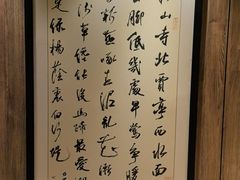 山寺北賈亭西水面
脚低幾處早鶯爭暖
新燕啄春泥亂花漸
淺草才能沒馬蹄最愛
足綠楊蔭裏白沙堤